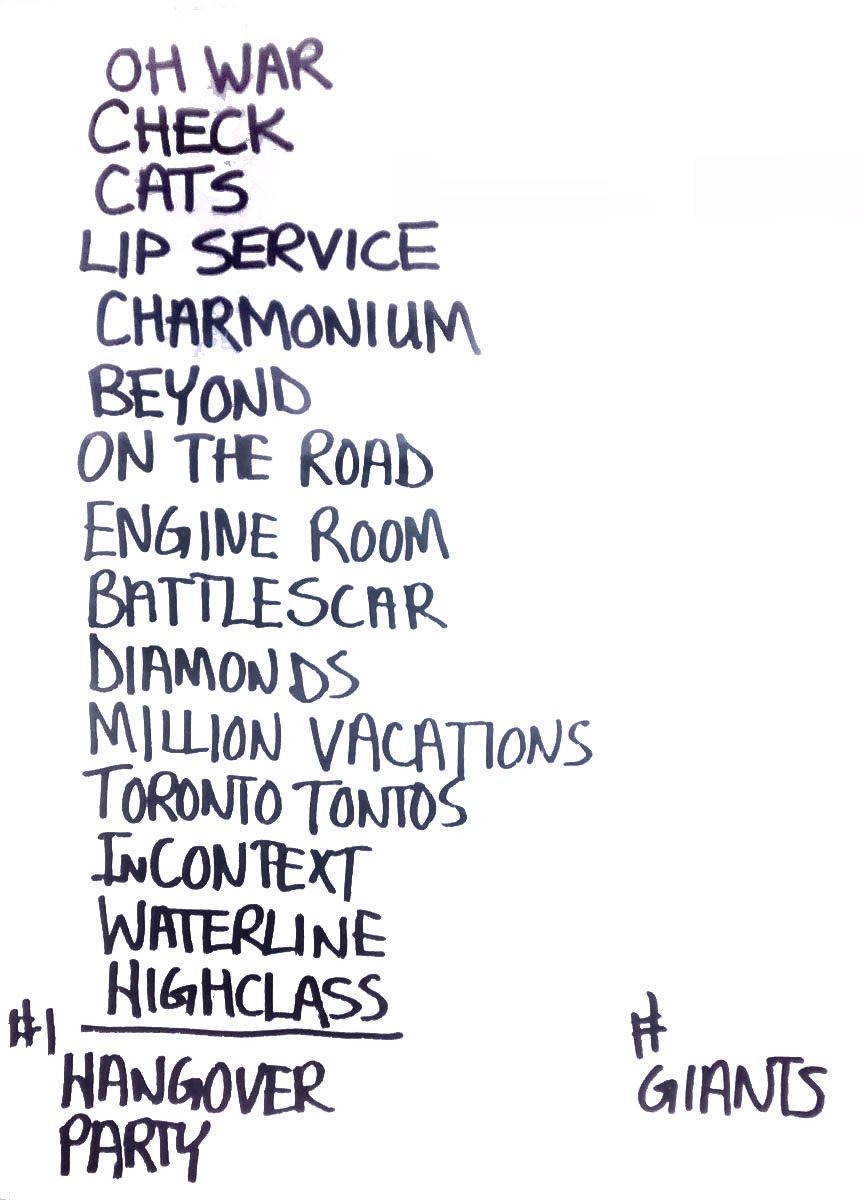 OH WAR
CHECK
CATS
LIP SERVICE
CHARMONIUM
BEYOND
ON THE ROAD
ENGINE ROOM
BATTLESCAR
DIAMONDS
MILLION VACATIONS
TORONTO TONTOS
INCONTEXT
WATERLINE
HIGHCLASS
#1
HANGOVER
PARTY
#
GIANTS